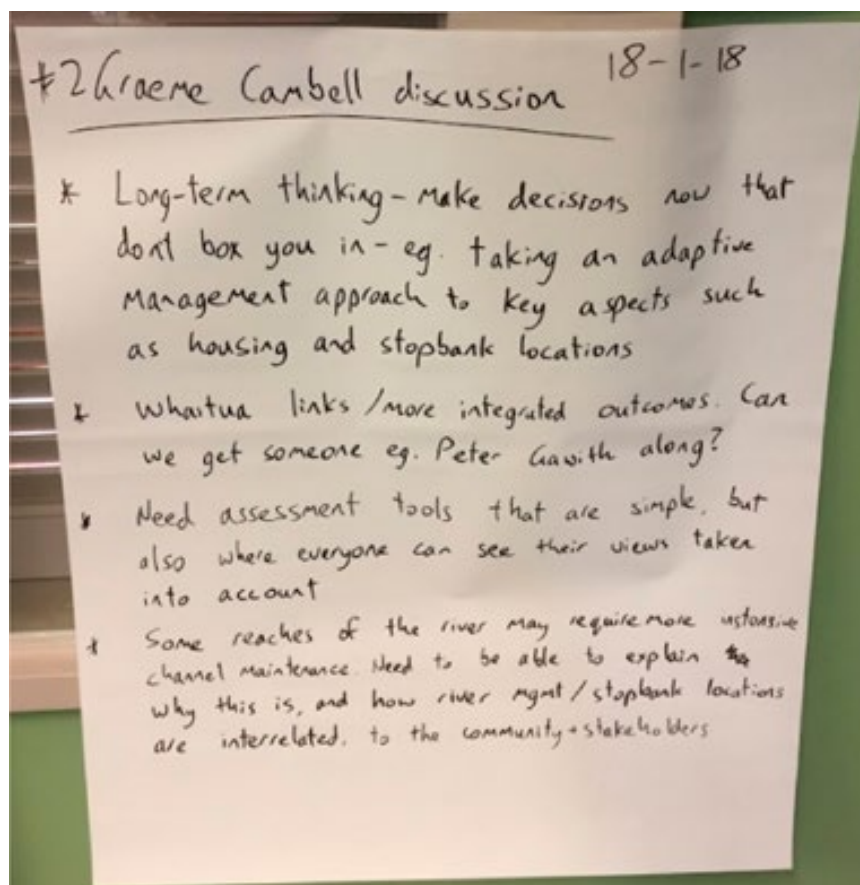 #2 Graeme Cambell discussion 18-1-18
* Long-term thinking - make decisions now that
dont box you in - eg. taking an adaptive
management approach to key aspects such
as housing and stopbank locations
* Whaitua links / more integrated outcomes. Can
we get someone eg. Peter Gawith along?
* Need assessment tools that are simple, but
also where everyone can see their views taken
into account
* Some reaches of the river may require more intensive
channel maintenance. Need to be able to explain
why this is, and how river mgmt / stopbank locations
are interrelated, to the community + stakeholders